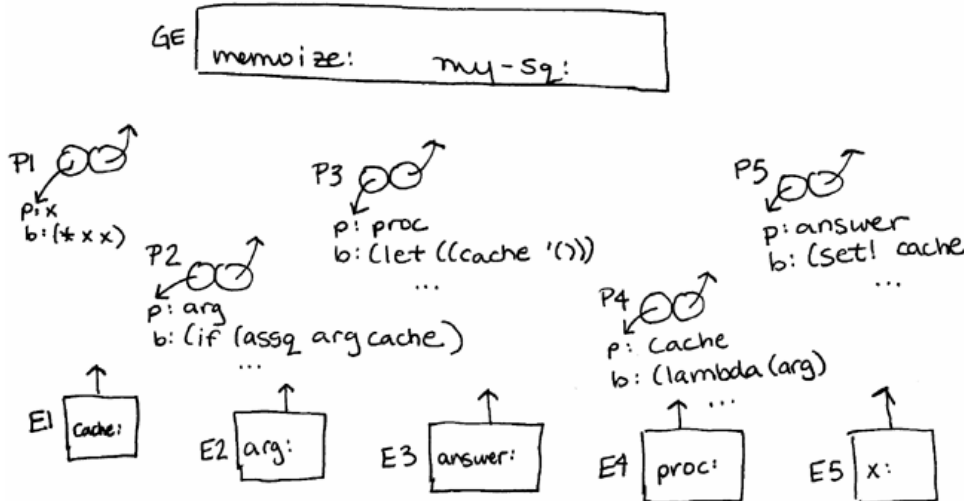 GE
memoize: my-sq:
P1
p: x
b: (* x x)
P2
p: arg
b: (if (assq arg cache)
...
P3
p: proc
b: (let ((cache '()))
...
P4
p: cache
b: (lambda (arg)
...
P5
p: answer
b: (set! cache
...
E1 cache:
E2 arg:
E3 answer:
E4 proc:
E5 x: